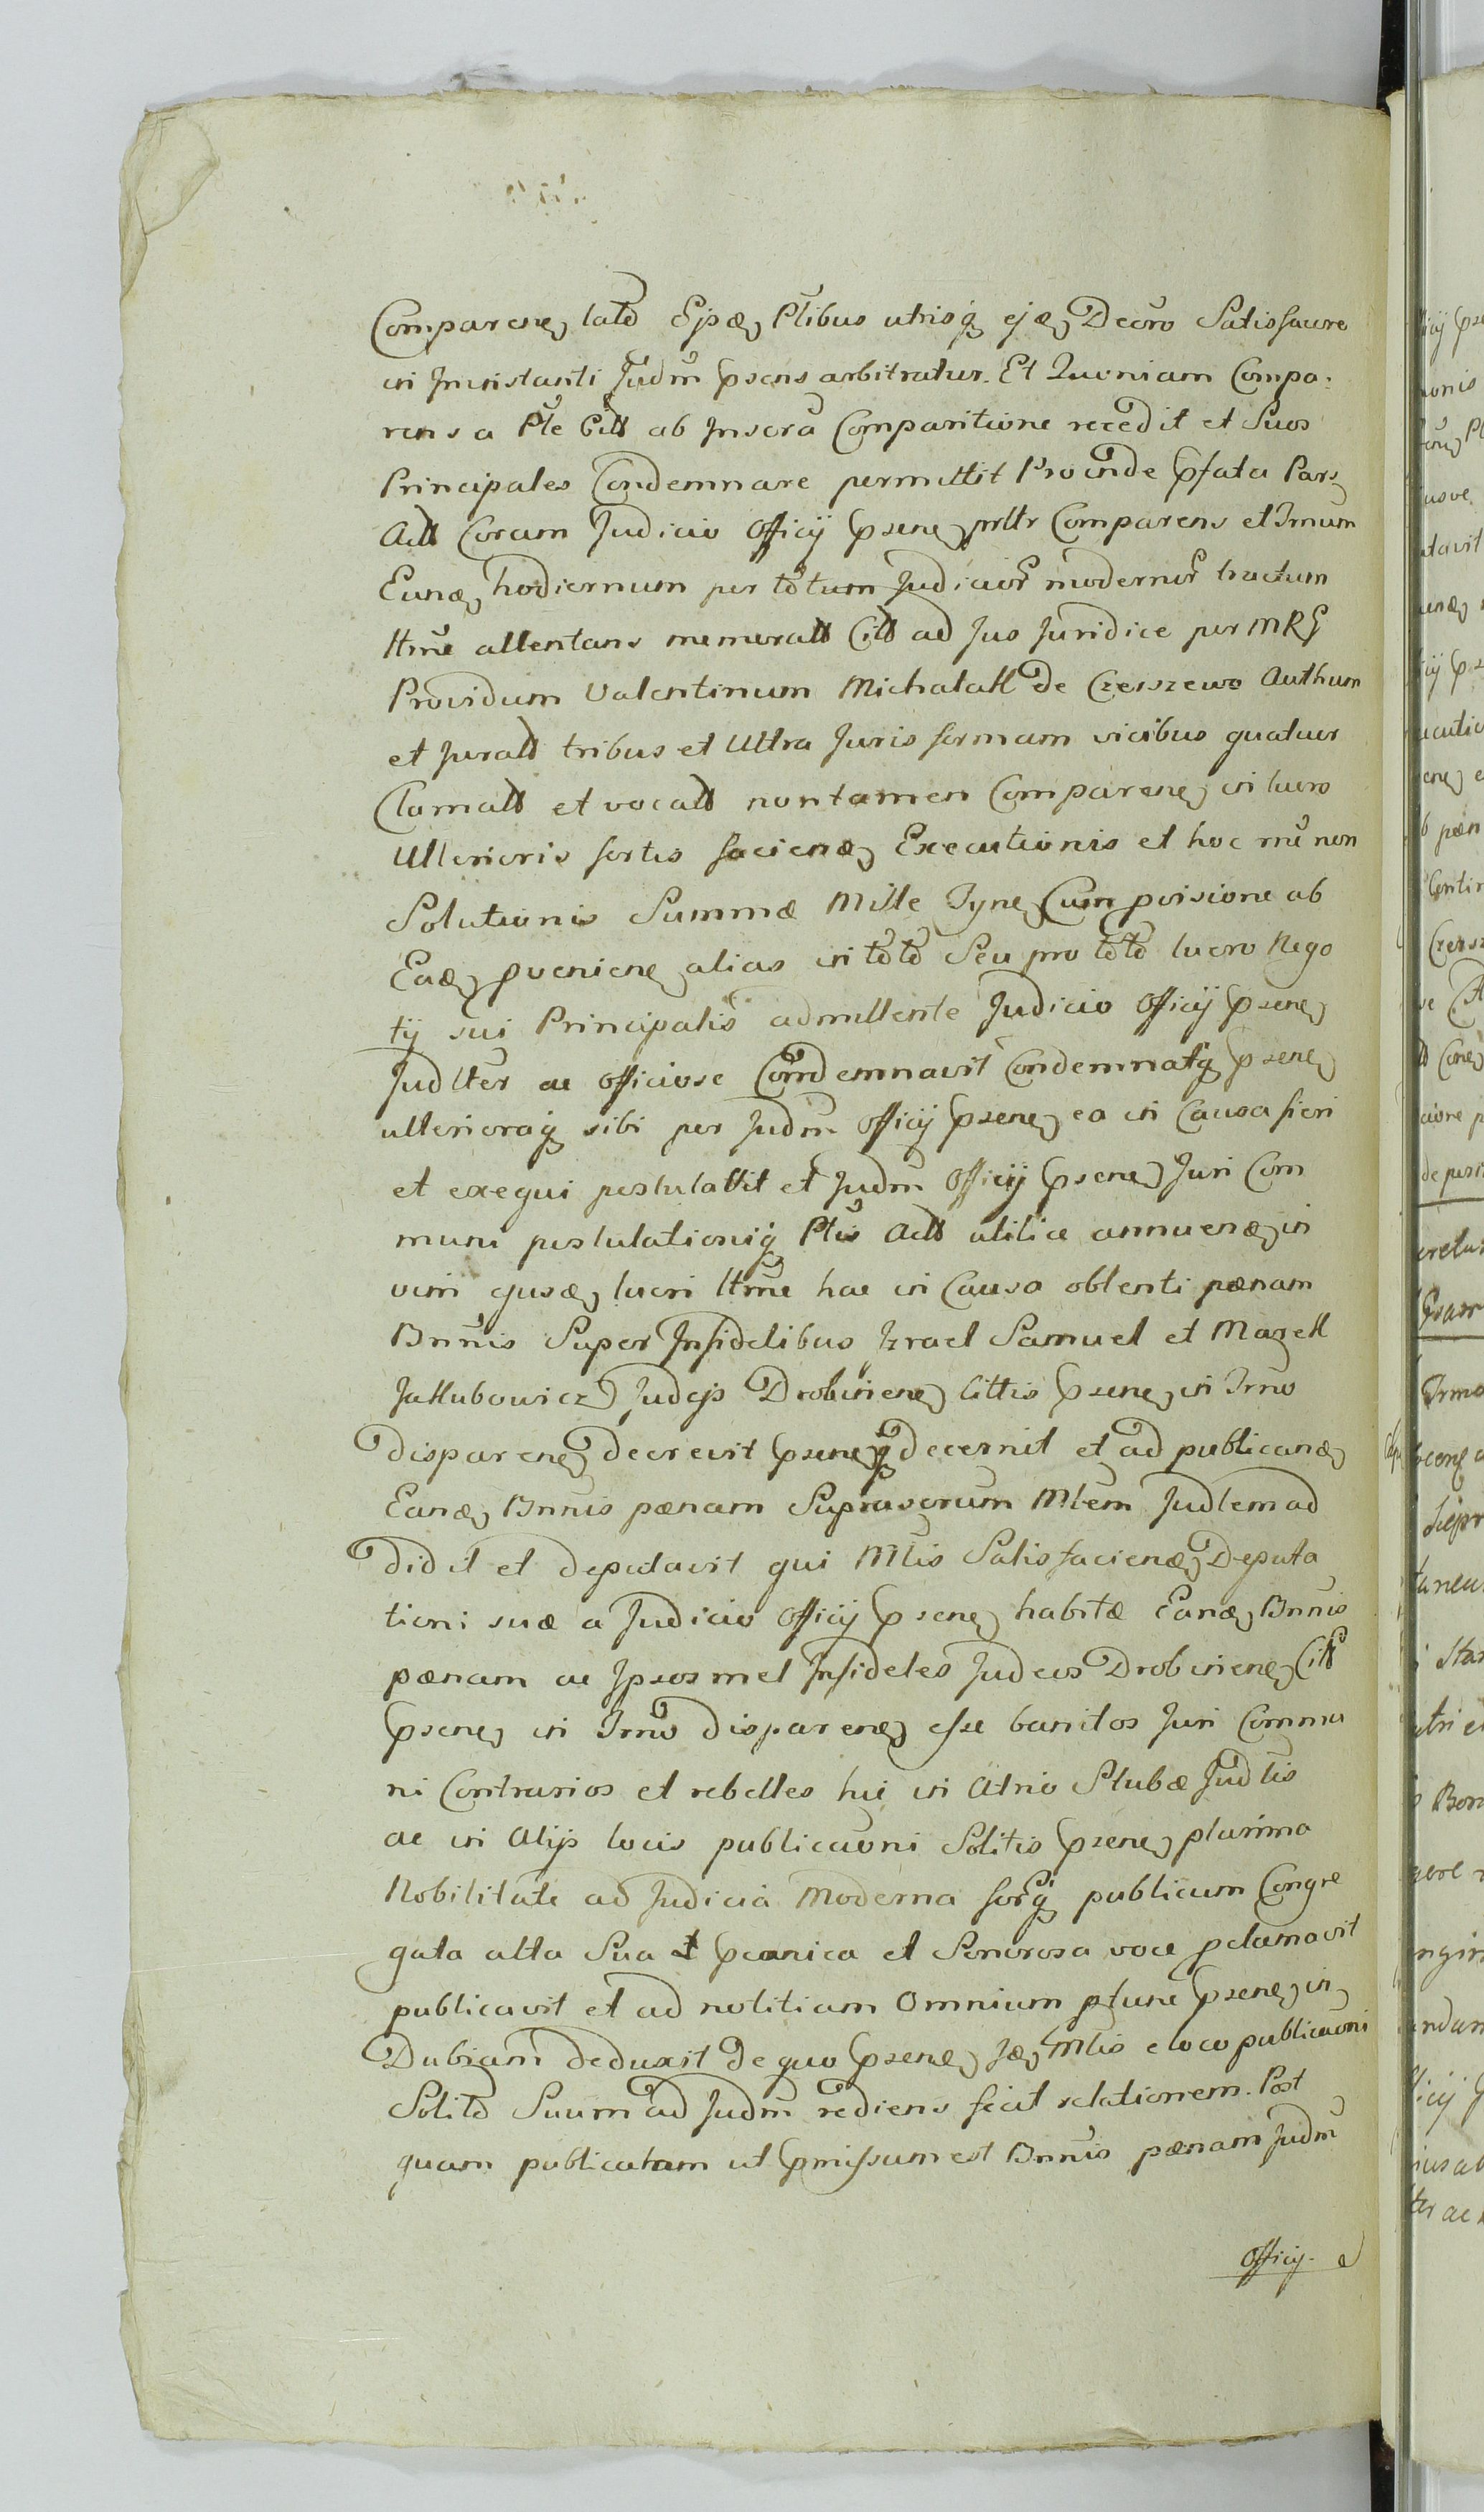 Comparens lato Ejsdē Ptibus utrisq ejsdē Decro Satisfacere
in Instanti Judm psens arbitratur. Et Quoniam Compa:
rens a Pte Citt ab Inscra Comparitione recedit et Suos
Principales Condemnare permittit Proinde pfata Pars
Actt Coram Judicio Officij psenē prltr Comparens et Trnum
Eundē hodiernum per totum Judicior modernor tractum
ltme attentans memoratt Citt ad Jus Juridice per MRG
Providum Valentinum Michalak de Czerszewo Authum
et Juratt tribus et Ultra Juris formam vicibus quatuor
Clamatt et vocatt non tamen Comparenē in lucro
Ulterioris fortis faciendē Executionis et hoc rne non
Solutionis Summæ Mille Tynē Cum provisione ab
Eadē pvenienē alias in toto Seu pro toto lucro Nego
tij sui Principalis admittente Judicio Officij psenē
Judlter ac officiose Condemnavit Condemnatq psenē
ulterioraq sibi per Judm Officij psenē ea in Causa fieri
et exequi postulavit et Judm Officij psenē Juri Com
muni postulationiq Ptis Actt utilia annuendē in
vim ejusdē lucri ltme hac in Causa obtenti pænam
Bnnis Super Infidelibus Izrael Samuel et Mazell
Jakubowicz Judejs Drobinenē Cittis psenē in Trno
disparenē decrevit psenēq decernit et ad publicandē
Eandē Bnnis pænam Suprascrum Mltem Judlem ad
didit et deputavit qui Mlis Satisfaciendē Deputa
tioni suæ a Judicio Officij psenē habitæ Eandē Bnnis
pænam ac Ipsosmet Infideles Judeos Drobinenē Citt
psenē in Trno disparenē esse banitos Juri Commu
ni Contrarios et rebelles hic in Atrio Stubæ Judlis
ac in Alijs locis publicaoni Solitis psenē plurima
Nobilitate ad Judicia Moderna forq publicum Congre
gata alta Sua pconica et Sonorosa voce pclamavit
publicavit et ad notitiam Omnium ptunc psenē in
Dubiam deduxit de quo psenē Idē Mlis e loco publicaoni
Solito Suum ad Judm rediens fecit relationem. Post
quam publicatam ut pmissum est Bnnis pænam Judm
Officij